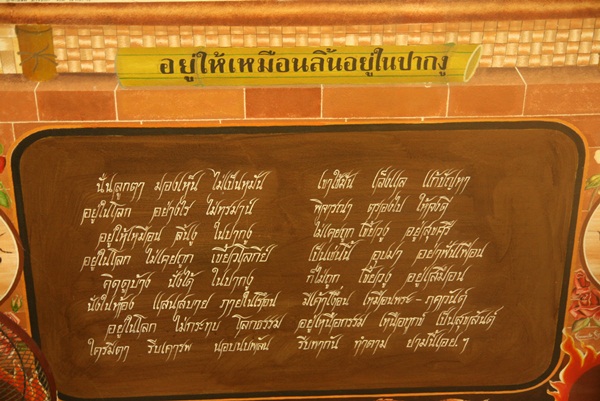 อยู่ให้เหมือนลิ้นอยู่ในปากงู
นั่นลูกตา มองเห็น ไม่เป็นหมัน เขาใช้มัน เล็งแล แก้ปัญหา
อยู่ในโลก อย่างไร ไม่ทรมาน์ พิจารณา ตรองไป ให้จงดี
อยู่ให้เหมือน ลิ้นงู ในปากงู ไม่เคยถูก เขี้ยวงู อยู่สุขศรี
อยู่ในโลก ไม่เคยถูก เขี้ยวโลกีย์ เป็นเช่นนี้ อุปมา อย่าฟั่นเฟือน
คิดดูบ้าง นั่งได้ ในปากงู ก็ไม่ถูก เขี้ยวงู อยู่เสมือน
นั่งในห้อง แสนสบาย ภายในเรือน มีเค้าเงื่อน เหมือนพระ-ภควันต์
อยู่ในโลก ไม่กระทบ โลกธรรม อยู่เหนือกรรม เหนือทุกข์ เป็นสุขสันต์
ใครมีตา รีบเคารพ นอบนบพลัน รีบพากัน ทำตาม ยามนี้เอย ฯ